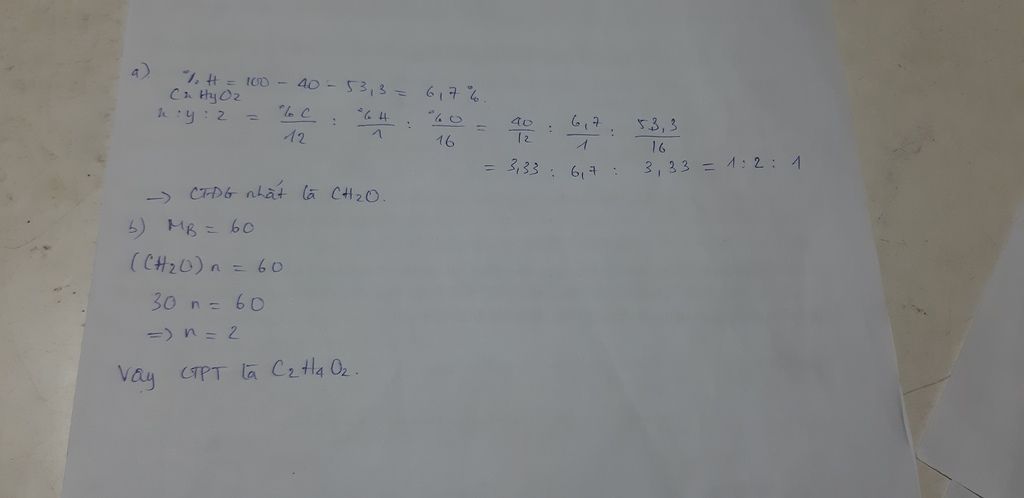 a) % H = 100 - 40 - 53,3 = 6,7 %.
CxHyOz
x : y : z = %C/12 : %H/1 : %O/16 = 40/12 : 6,7/1 : 53,3/16
= 3,33 : 6,7 : 3,33 = 1 : 2 : 1
→ CTĐG nhất là CH2O.
b) MB = 60
(CH2O) n = 60
30 n = 60
=> n = 2
Vậy CTPT là C2H4O2.